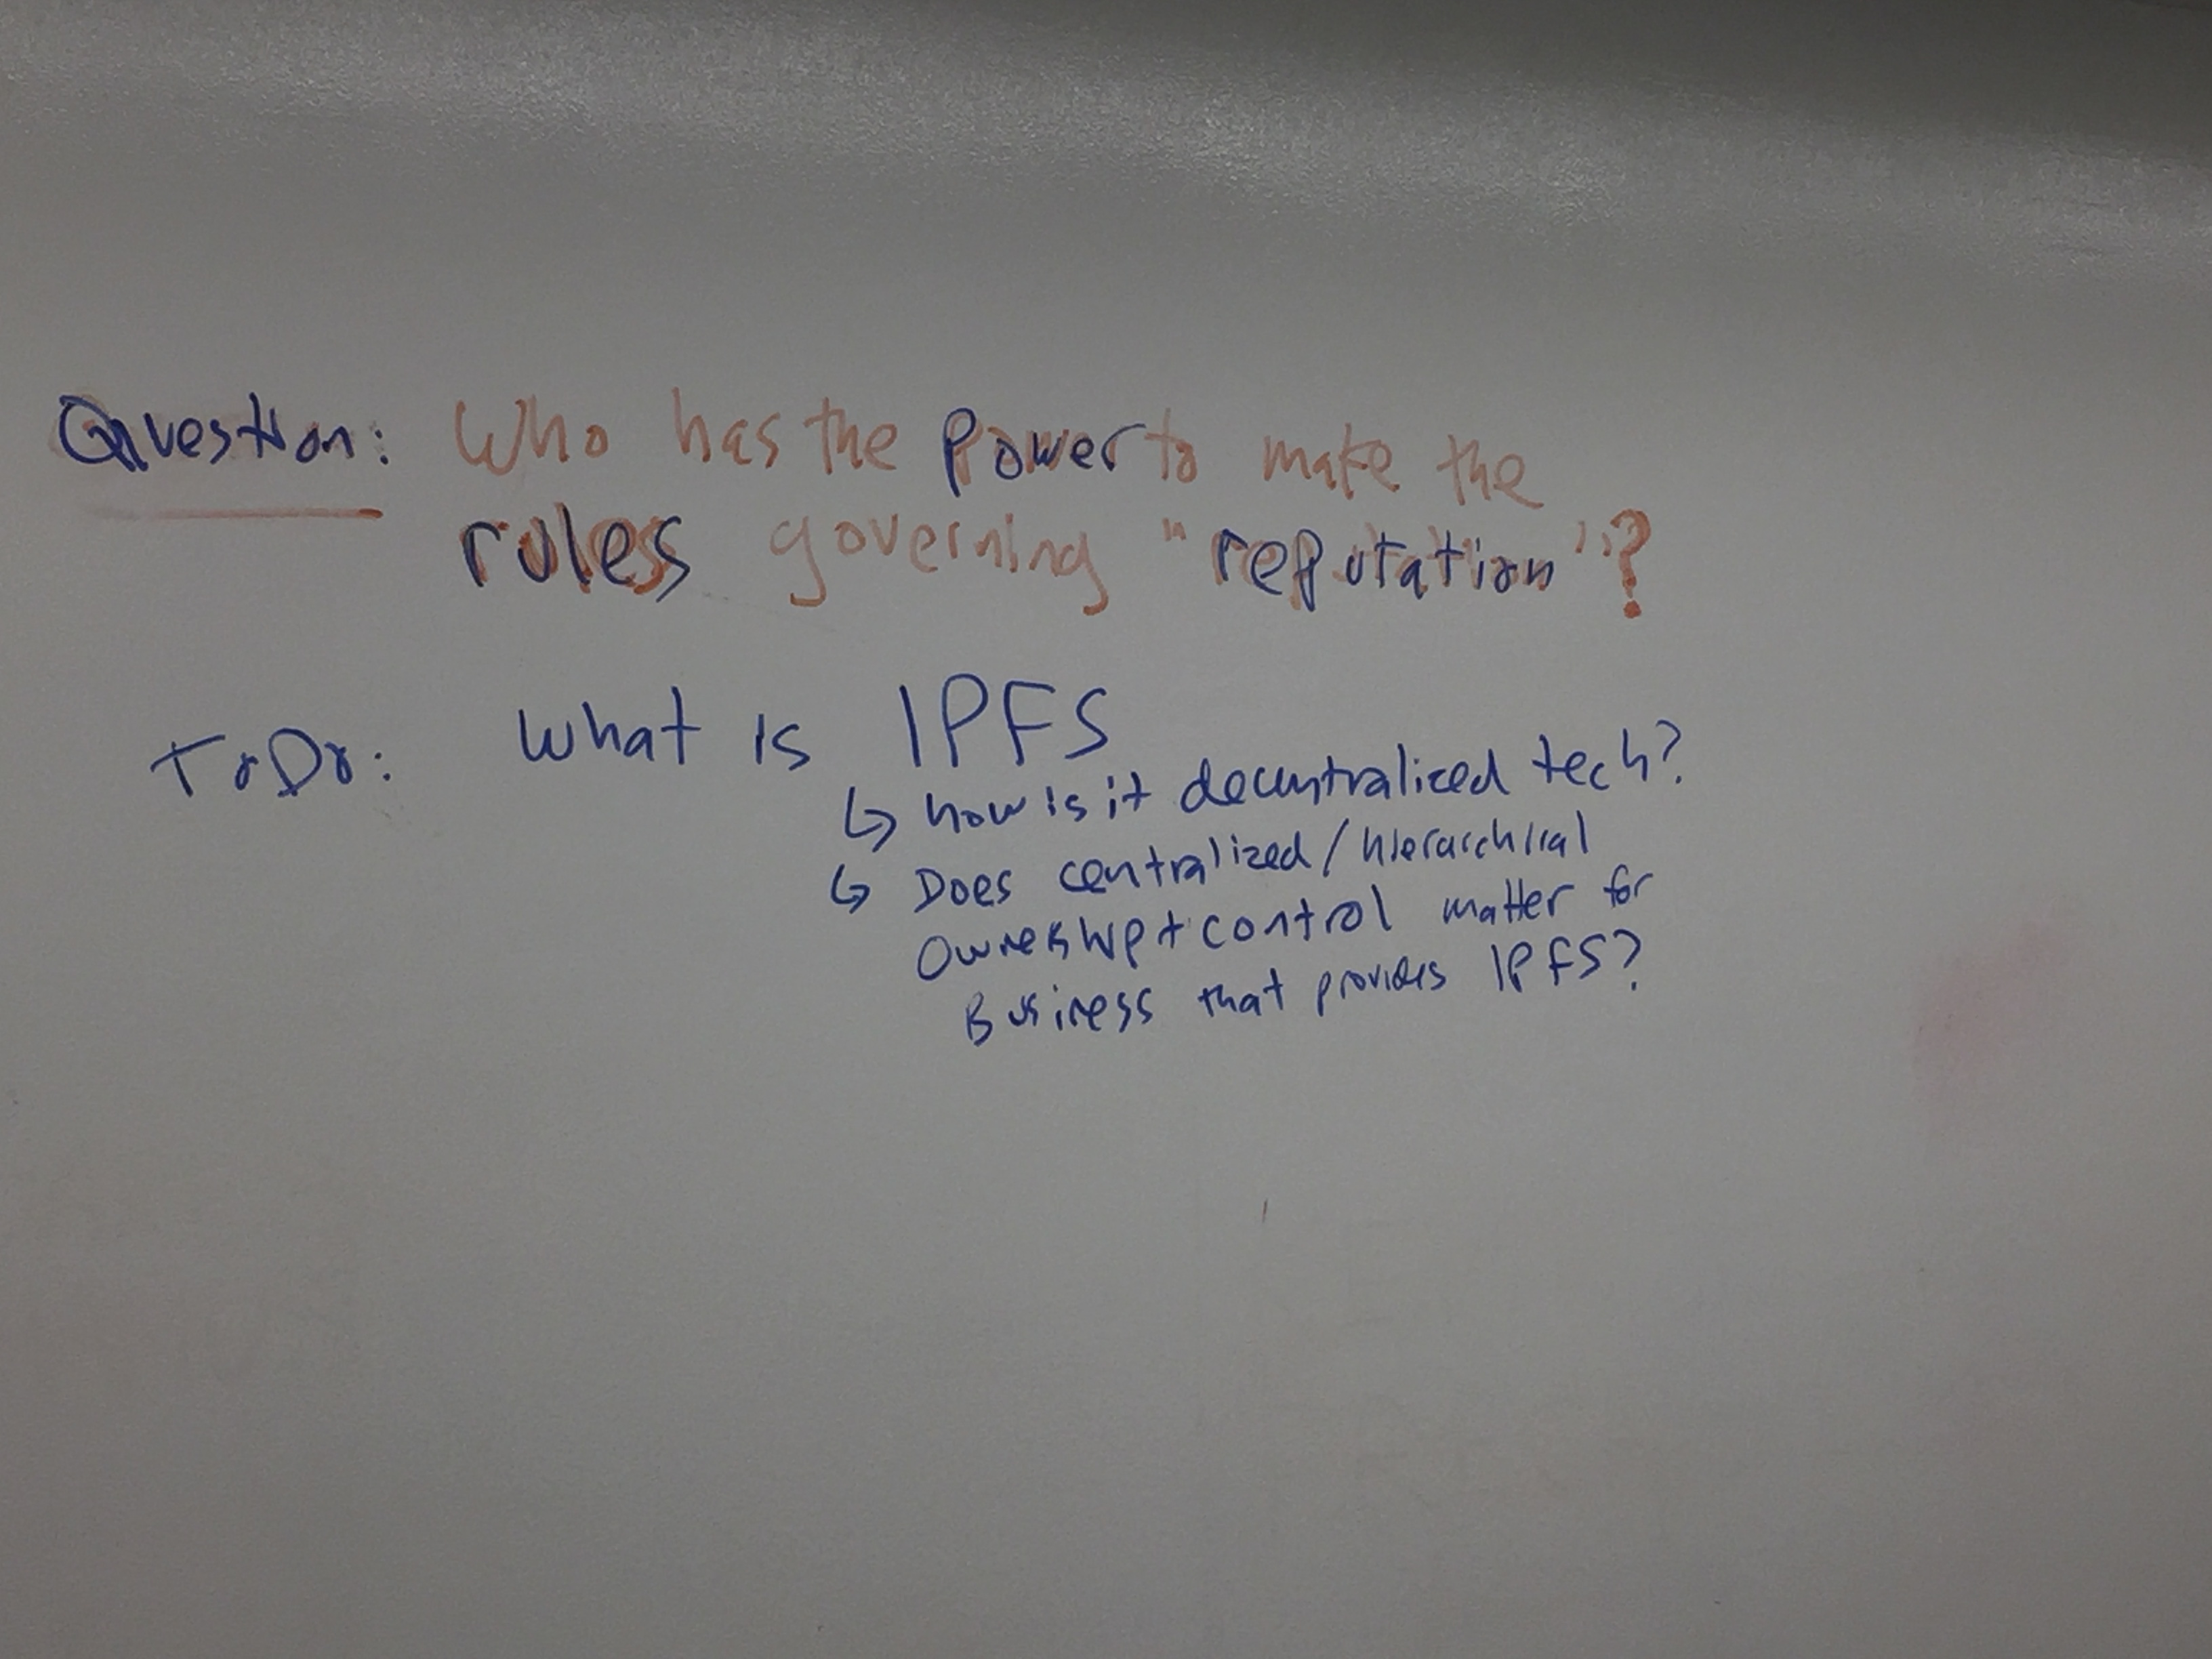 Question: Who has the power to make the
rules governing "reputation"?
ToDo: What is IPFS
↳ how is it decentralized tech?
↳ Does centralized/hierarchical
Ownership + control matter for
Business that provides IPFS?